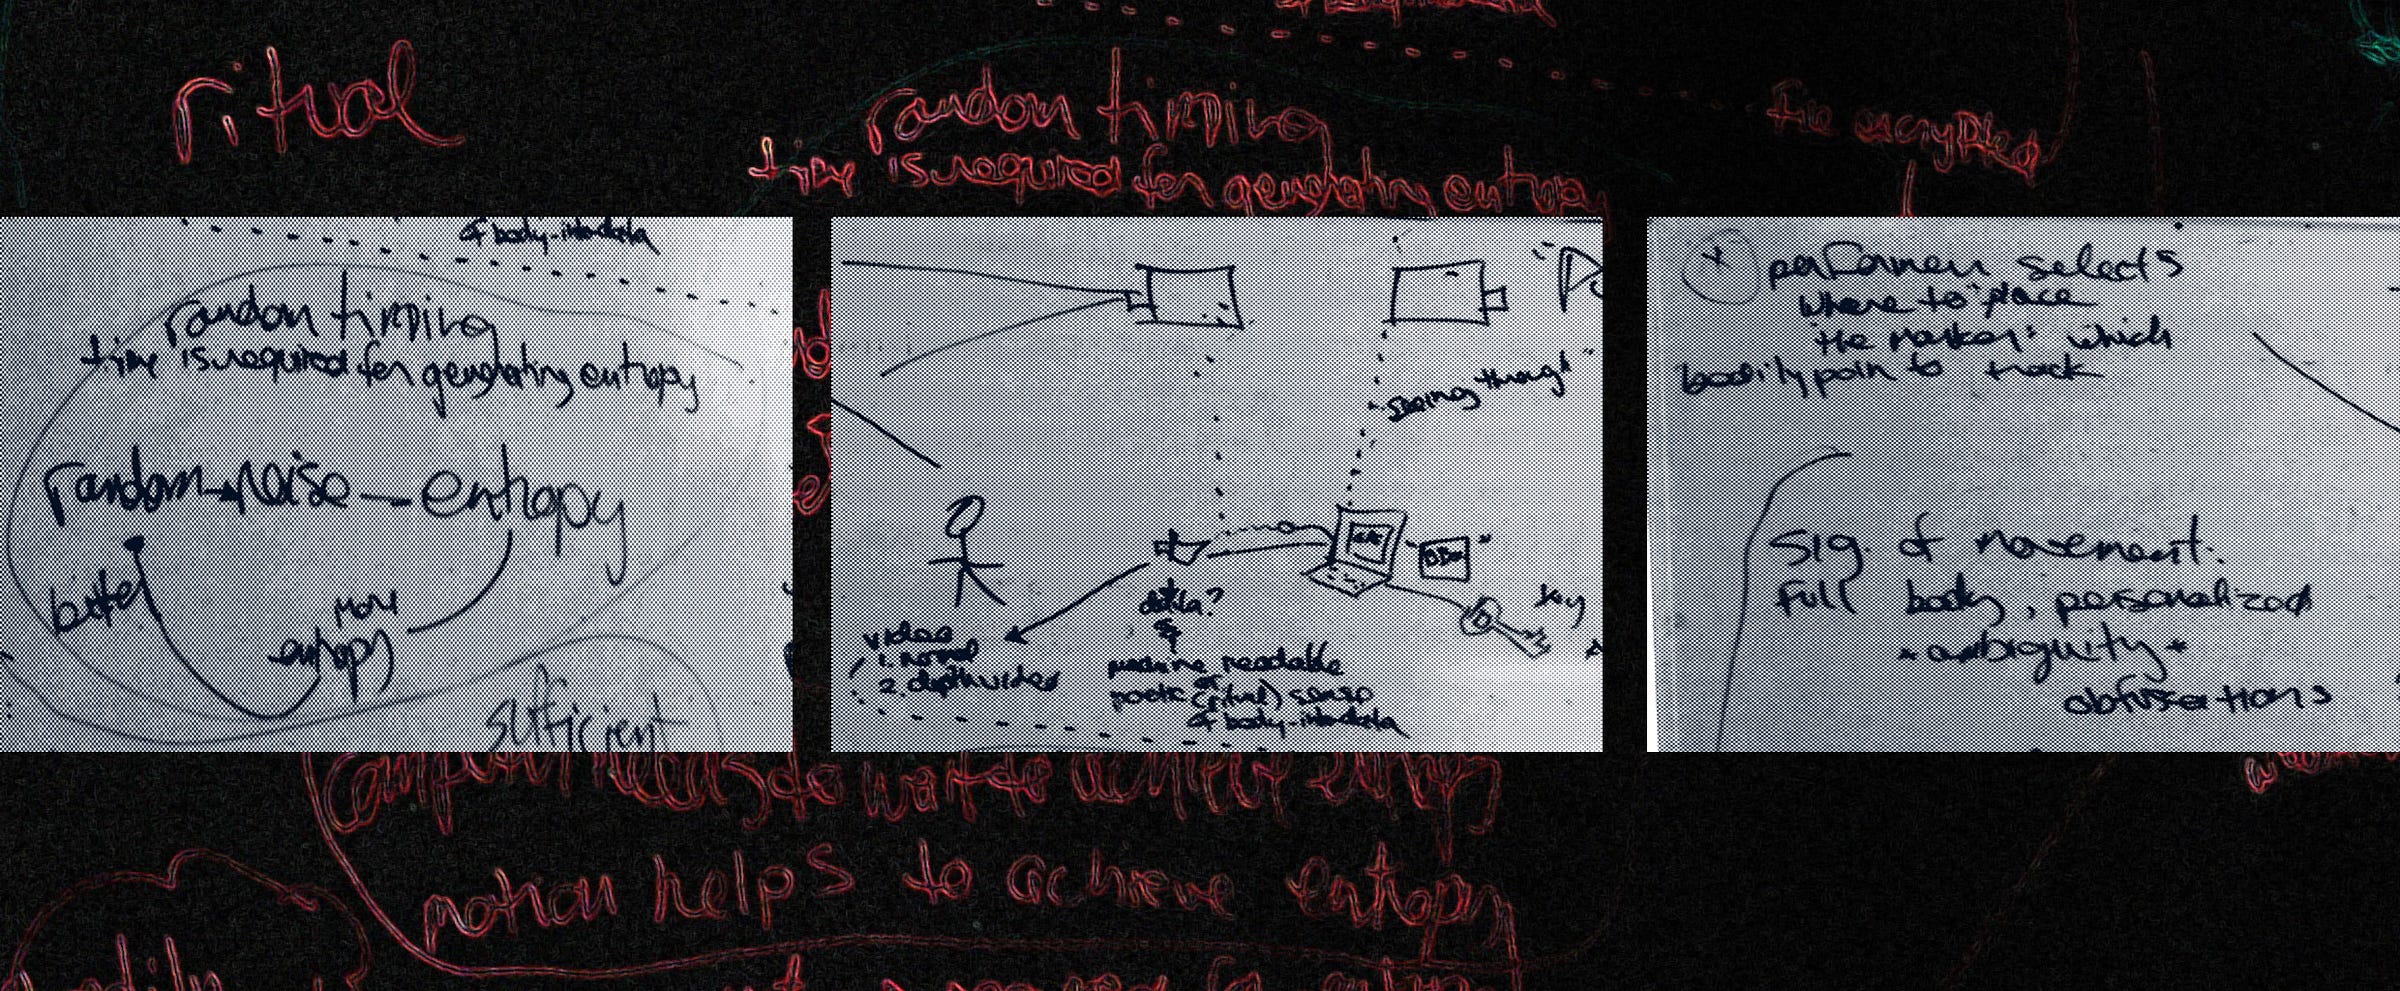 ritual
random timing
time is required for generating entropy
file encrypted
& body-into-data
random timing
time is required for generating entropy
random noise entropy
better
more
entropy
sufficient
seeing through
key
data?
&
video
1. normal
2. depth video
machine readable
or
poetic (ritual) sense
& body-into-data
performer selects
where to place
the marker: which
bodily point to track
sig. of movement.
full body, personalized
*ambiguity*
obfuscations
computer needs to wait to achieve entropy
motion helps to achieve entropy
bodily